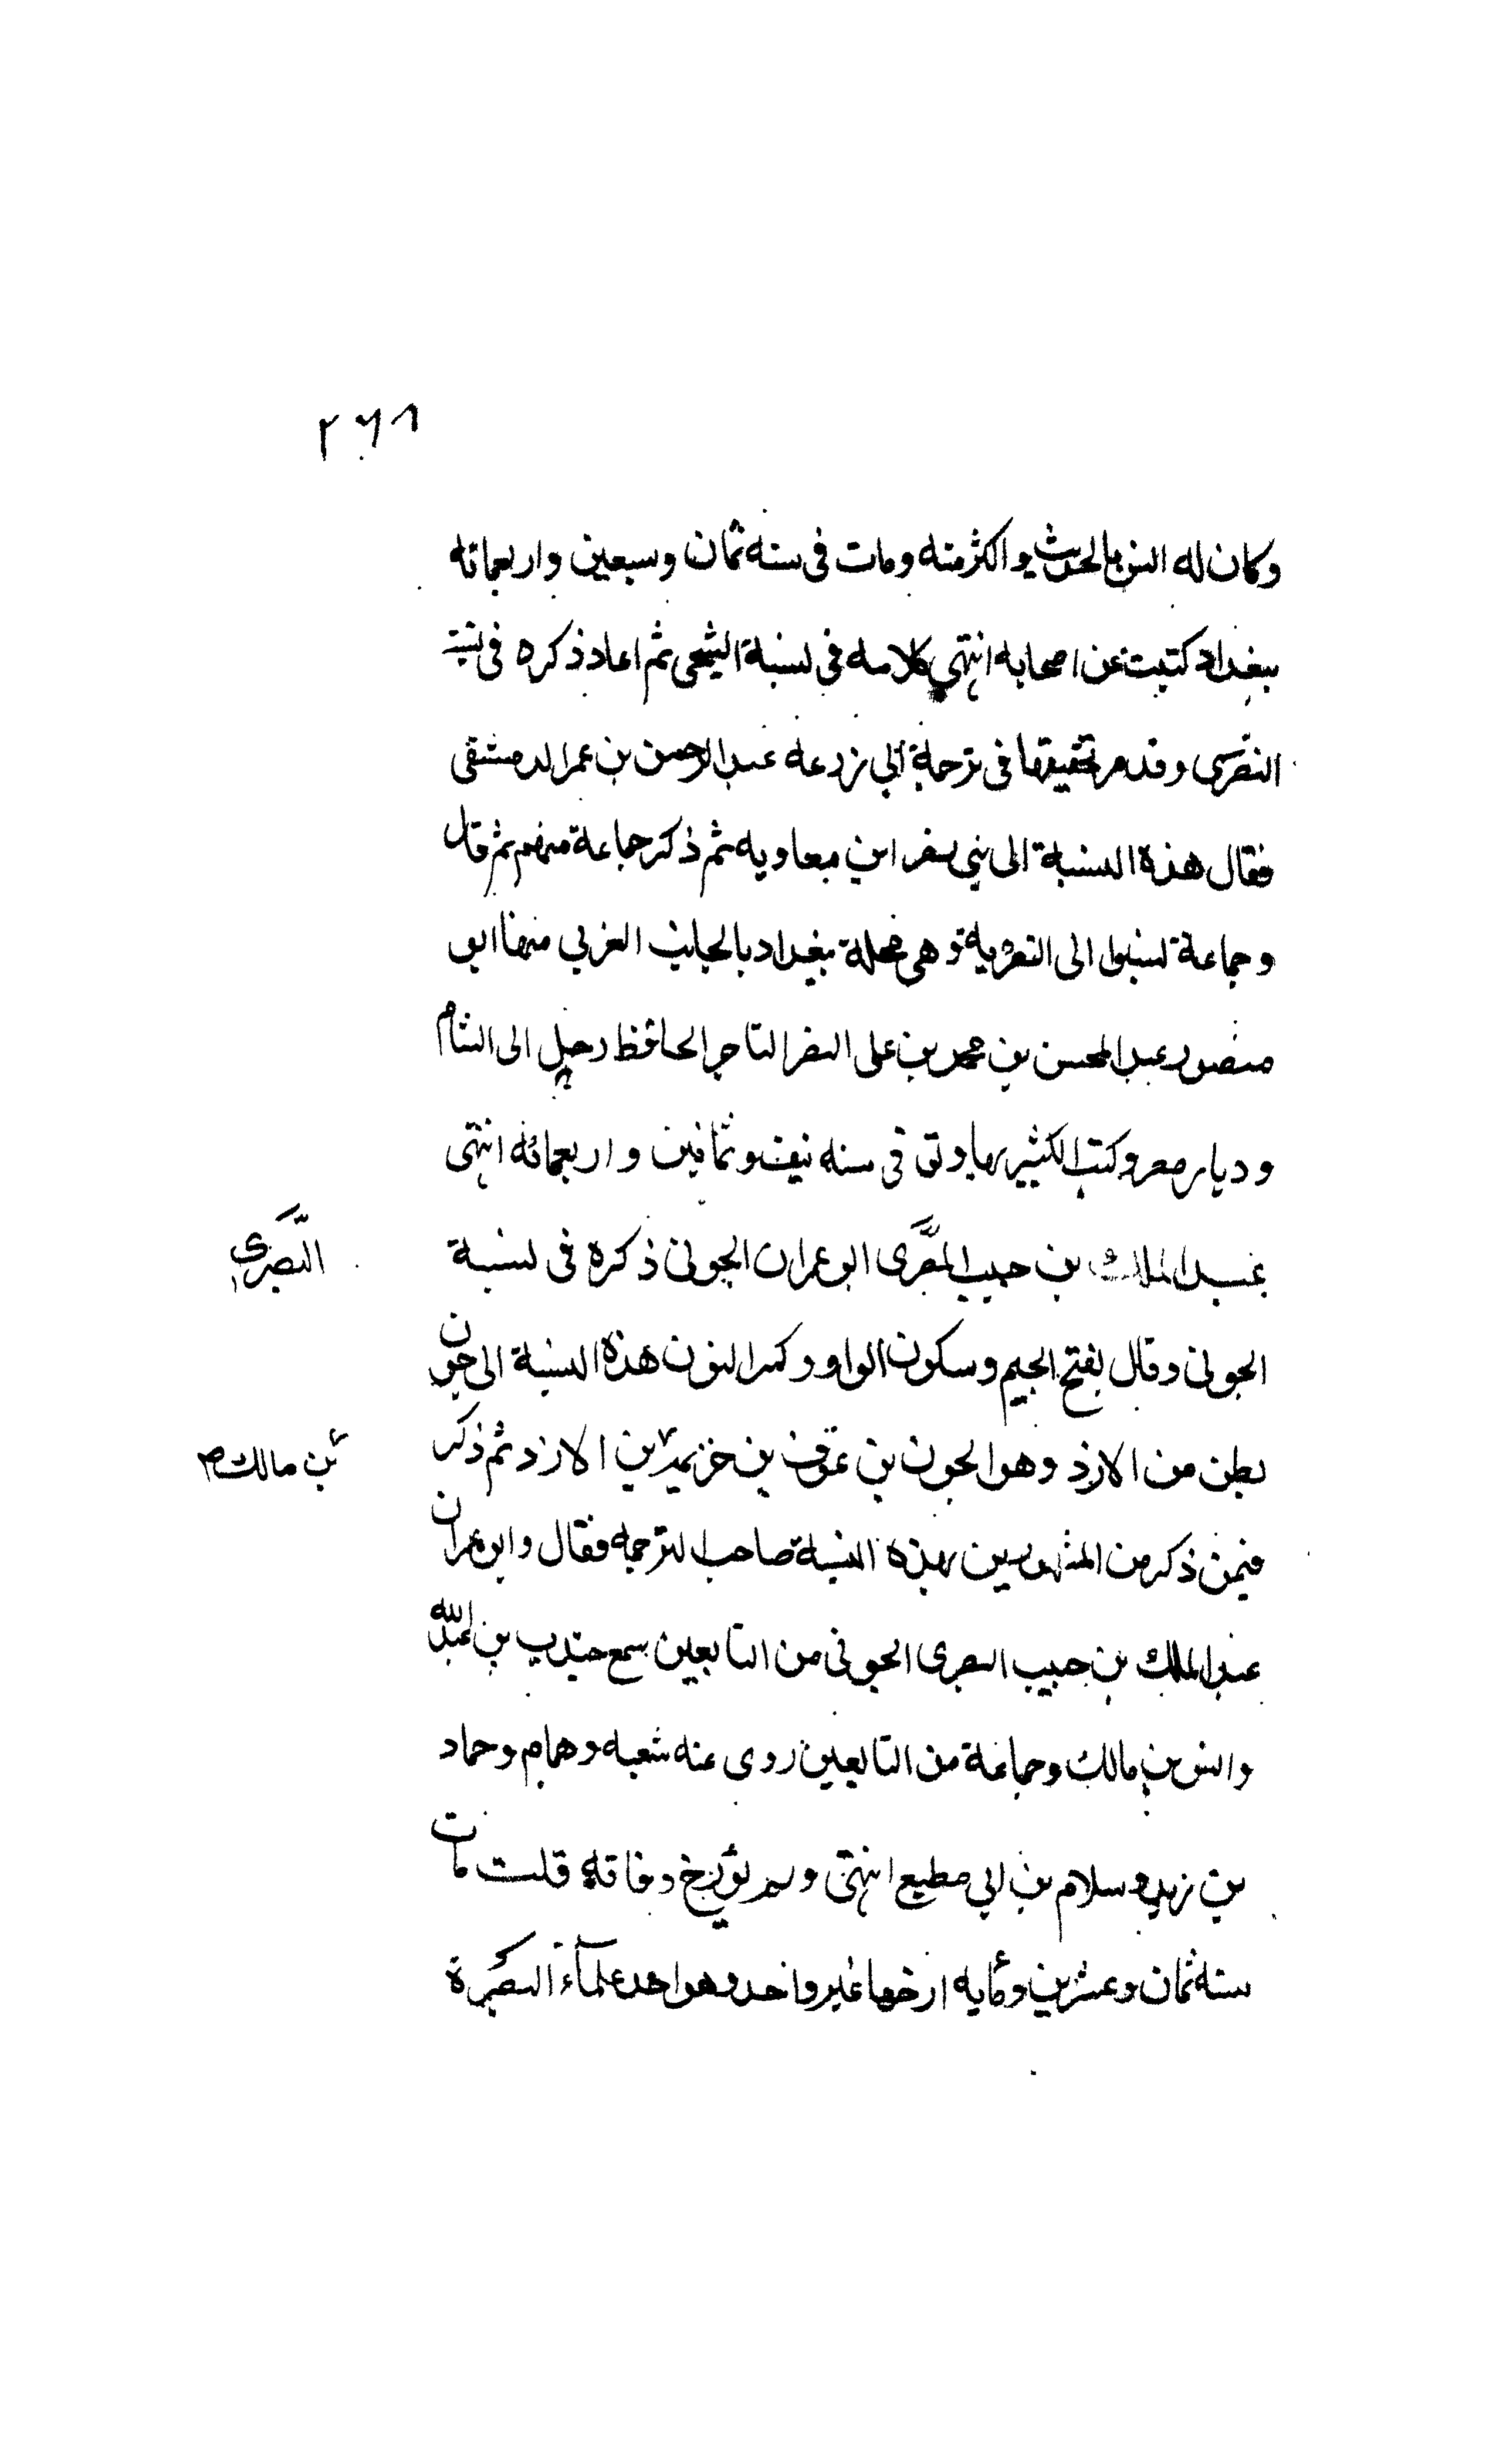 ٢٦٨
وكان له انس بالحديث واكثر منه ومات في سنه ثمان وسبعين واربعمائه
ببغداد كتبت عن اصحابه انتهي كلامه في نسبة الشيحي ثم اعاد ذكره في نسبة
النصرى وقد مر تحقيقها في ترجمة أبي زرعه عبد الرحمن بن عمر الدمشقى
فقال هذه النسبة الى بني نصر ابن معاويه ثم ذكر جماعة منهم ثم قال
وجماعة نسبوا الى النصرية وهى محلة ببغداد بالجانب الغربي منها ابو
منصور عبد المحسن بن محمد بن على النصر التاجر الحافظ رحل الى الشام
وديار مصر وكتب الكثير بها وتوفى في سنه نيف وثمانين واربعمائه انتهى
عبد الملك بن حبيب ابو عمران الجونى ذكره فى نسبة
البَّصرى
الجونى وقال بفتح الجيم وسكون الواو وكسر النون هذه النسبة الى جون
بطن من الازد وهو الجون بن عوف بن خزيمة بن الازد ثم ذكر
بن مالك ص
فيمن ذكر من المشهورين بهذه النسبة صاحب الترجمه فقال وابو عمران
عبد الملك بن حبيب البصرى الجونى من التابعين سمع جندب بن عبد الله
وانس بن مالك وجماعة من التابعين روى عنه شعبه وهمام وحماد
بن زيد وسلام بن ابي مطيع انتهى ولم يؤرخ وفاته قلت مات
سنه ثمان وعشرين ومايه ارخها غير واحد وهو احد علمآء البصرة